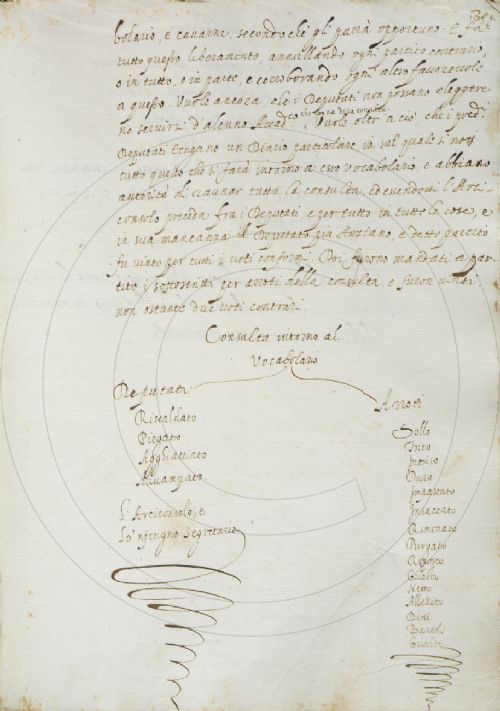 bolario, e cavarne, secondo ché gli parrà opportuno. E fa
tutto questo liberamente, annullando ogni partito contrario,
o in tutto, o in parte, e corroborando ogni altro favorevole
a questo. Vuole ancora, che i Deputati non possano eleggere
ne servirsi d'alcuno Accad.co che non sia della consulta. Vuole oltr'a ciò, che i pred.i
Deputati tengano un Diario particolare in sul quale si noti
tutto quello che si farà intorno a esso Vocabolario e abbiano
autorità di raunar tutta la consulta, ed essendovi l'Arci
consolo preseda fra i Deputati e per tutto in tutte le cose, e
in sua mancanza il Deputato più Anziano, e detto partito
fu vinto per tutti i voti conformi. Poi furono mandati a par
tito i sottoscritti per arroti della consulta e furon vinti
non ostante due voti contrari.
Consulta intorno al
Vocabolario
Deputati
Riscaldato
Piegato
Agghiacciato
Avvampato
L'Arciconsolo, e
Lo 'nferigno Segretario
Arroti
Sollo
Trito
Intriso
Duro
Impastato
Insaccato
Rimenato
Purgato
Riposto
Guasto
Netto
Abbellito
Dini
Bardi
Guardi